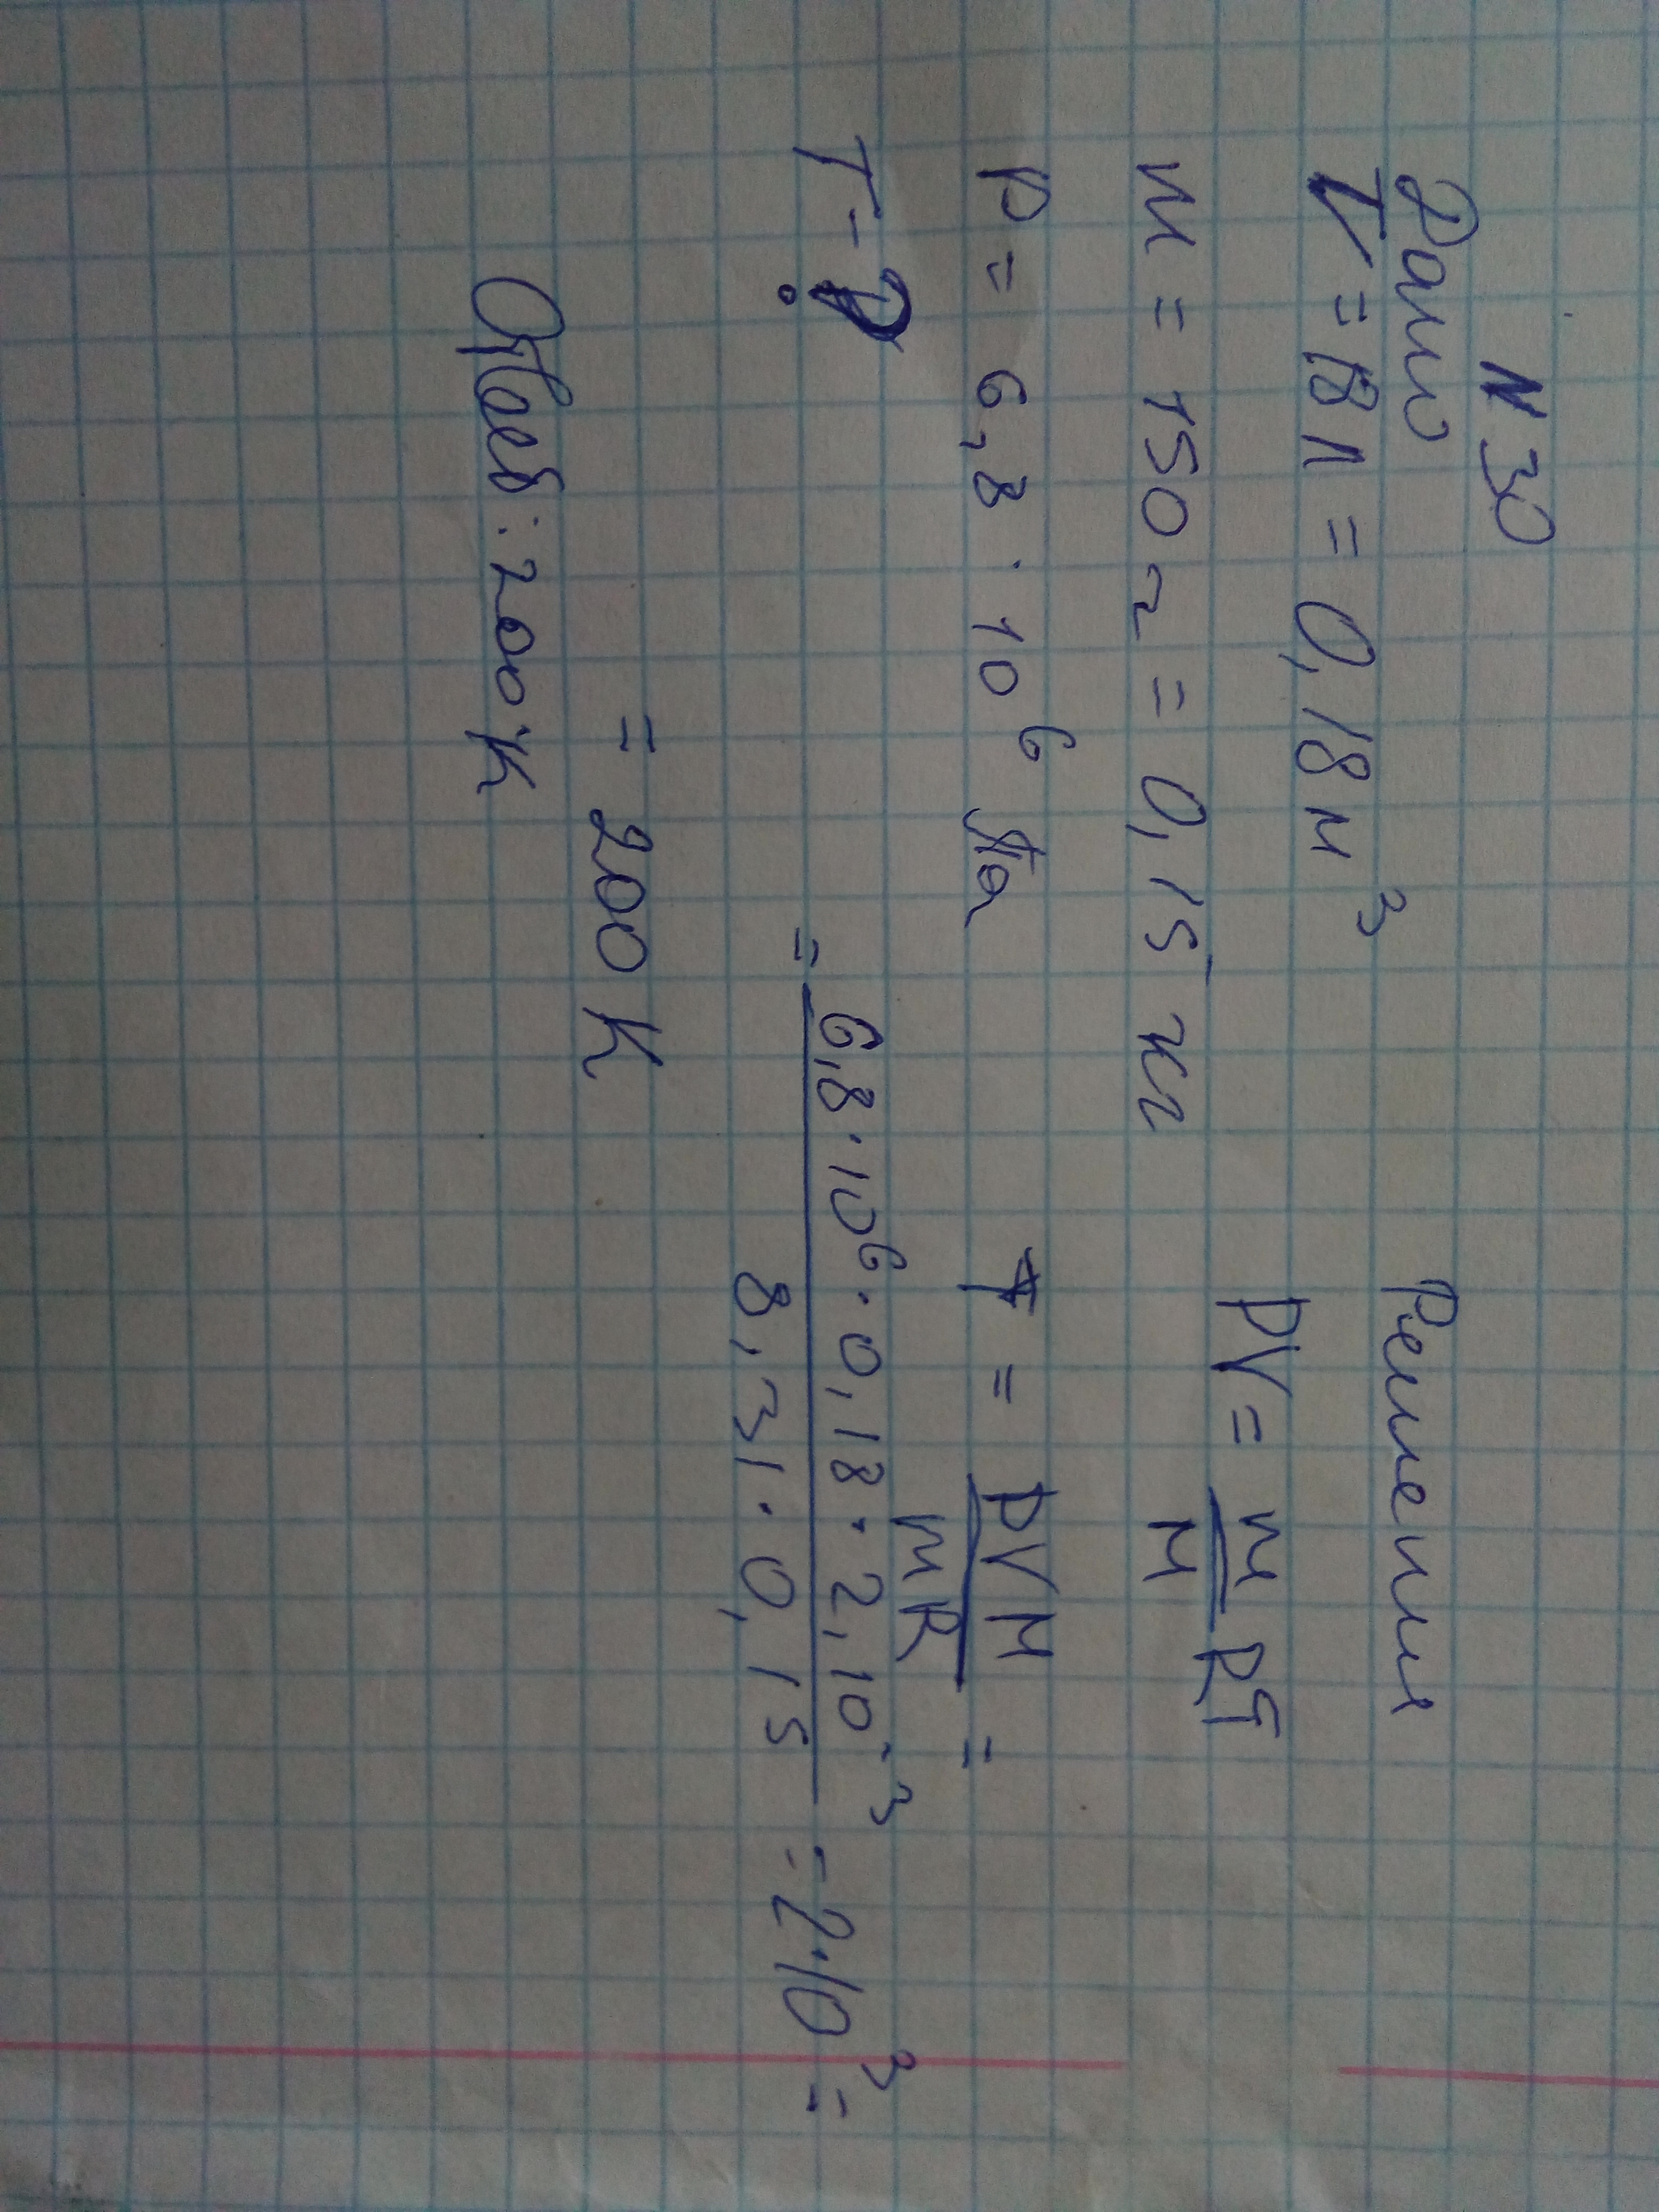 N 30
Дано
V = 18 л = 0,18 м³
m = 150 г = 0,15 кг
p = 6,8 · 10⁶ Па
T - ?
Решении
pV = m/M RT
T = pVM/mR =
= 6,8 · 10⁶ · 0,18 · 2,10⁻³ / 8,31 · 0,15 = 2·10³ =
= 200 K
Ответ: 200 K